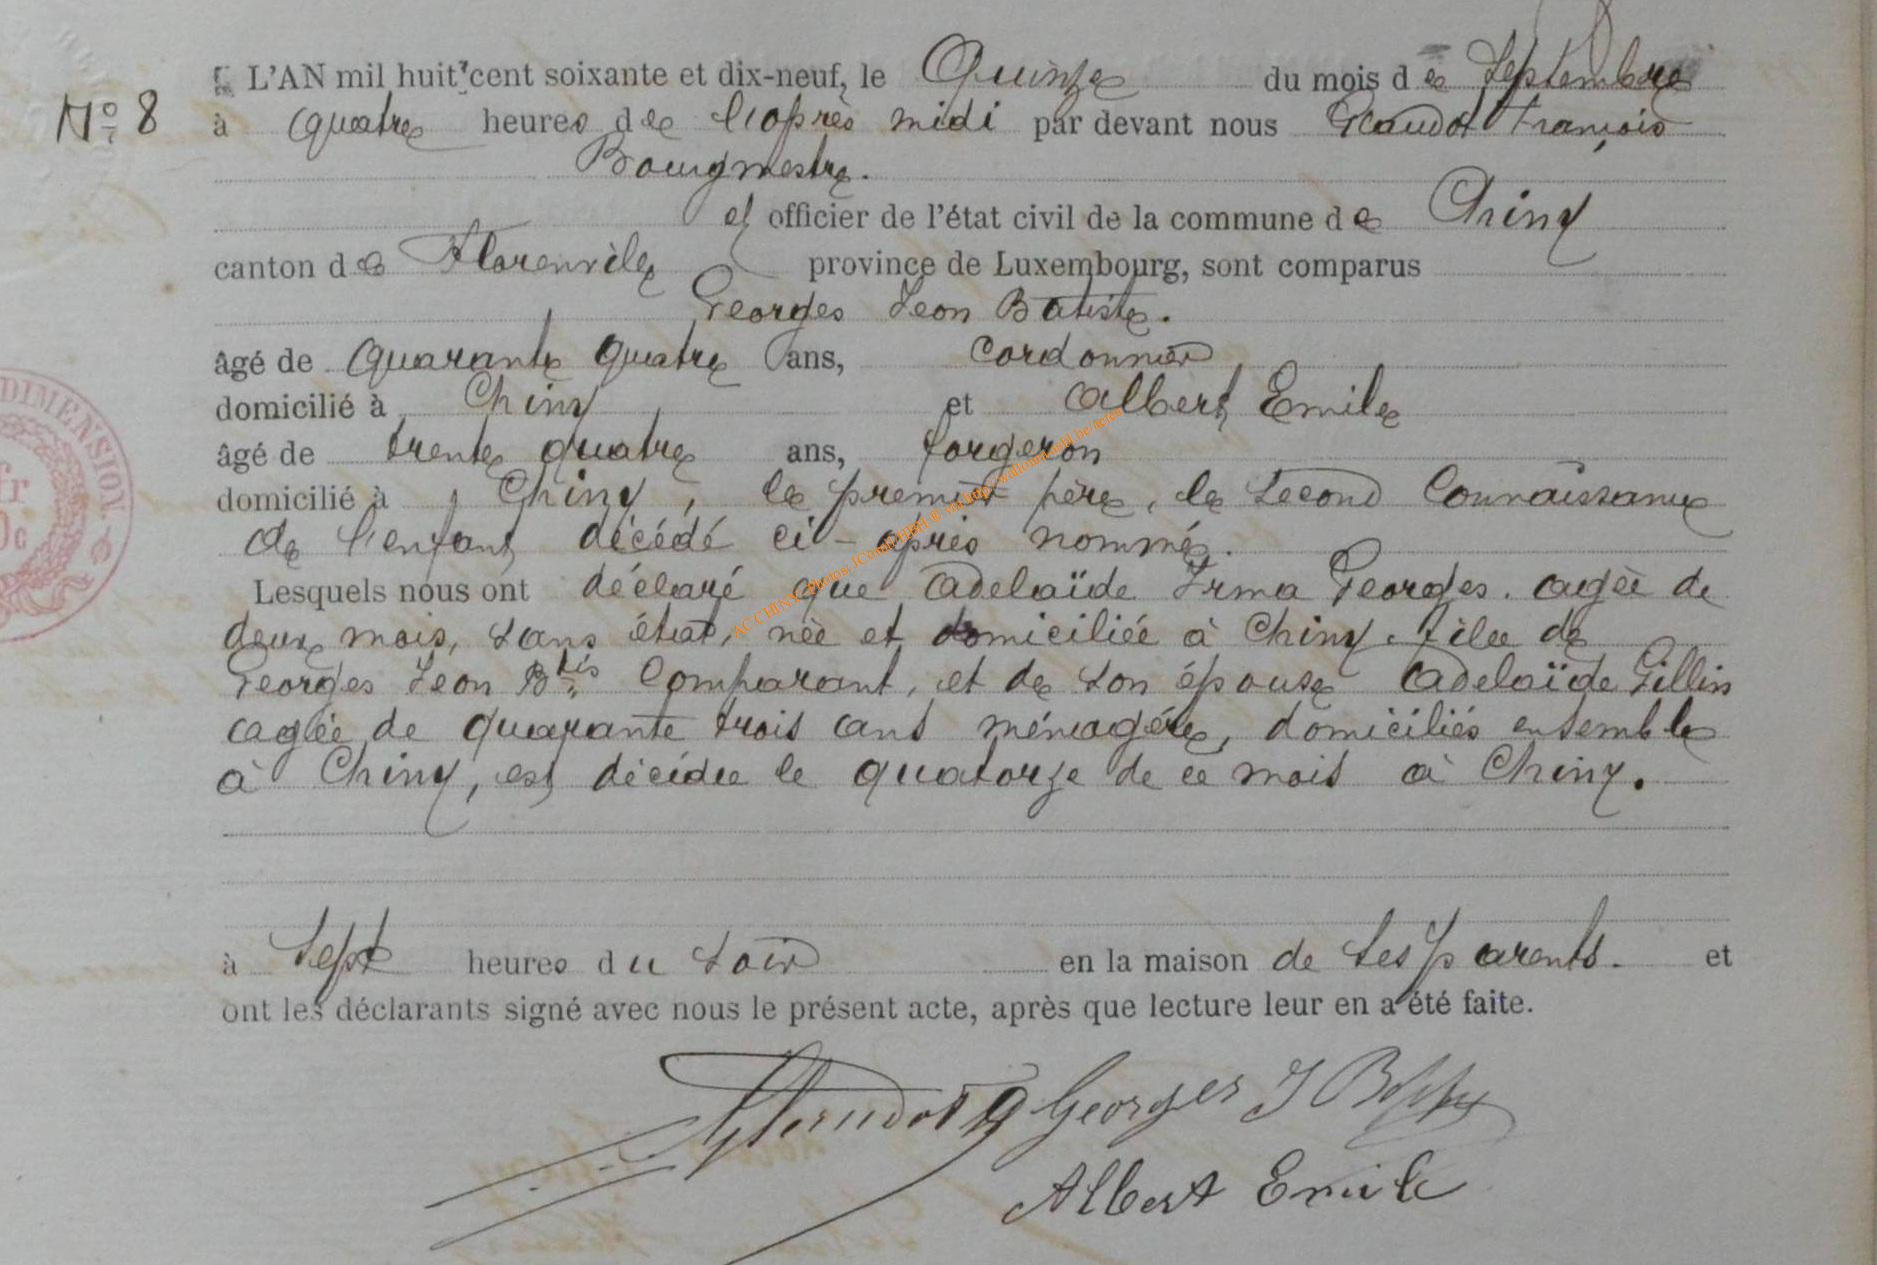 N° 8
L'AN mil huit cent soixante et dix-neuf, le Quinze du mois de Septembre
à quatre heures de l'après midi par devant nous François
Bourgmestre.
et officier de l'état civil de la commune de Chiny
canton de Florenville province de Luxembourg, sont comparus
Georges Leon Batiste.
âgé de quarante quatre ans, cordonnier
domicilié à Chiny et Albert Emile
âgé de trente quatre ans, forgeron
domicilié à Chiny, le premier père, le second connaissance
de l'enfant décédé ci-après nommé.
Lesquels nous ont déclaré que Adelaïde Irma Georges. agée de
deux mois, sans état, née et domiciliée à Chiny. file de
Georges Leon Btis Comparant, et de son épouse Adelaïde Gillin
agée de quarante trois ans ménagère, domiciliés ensemble
à Chiny, est décédée le quatorze de ce mois à Chiny.
à Sept heures du soir en la maison de ses parents. et
ont les déclarants signé avec nous le présent acte, après que lecture leur en a été faite.
Georges J
Albert Emile
DIMENSION.
fr
0c